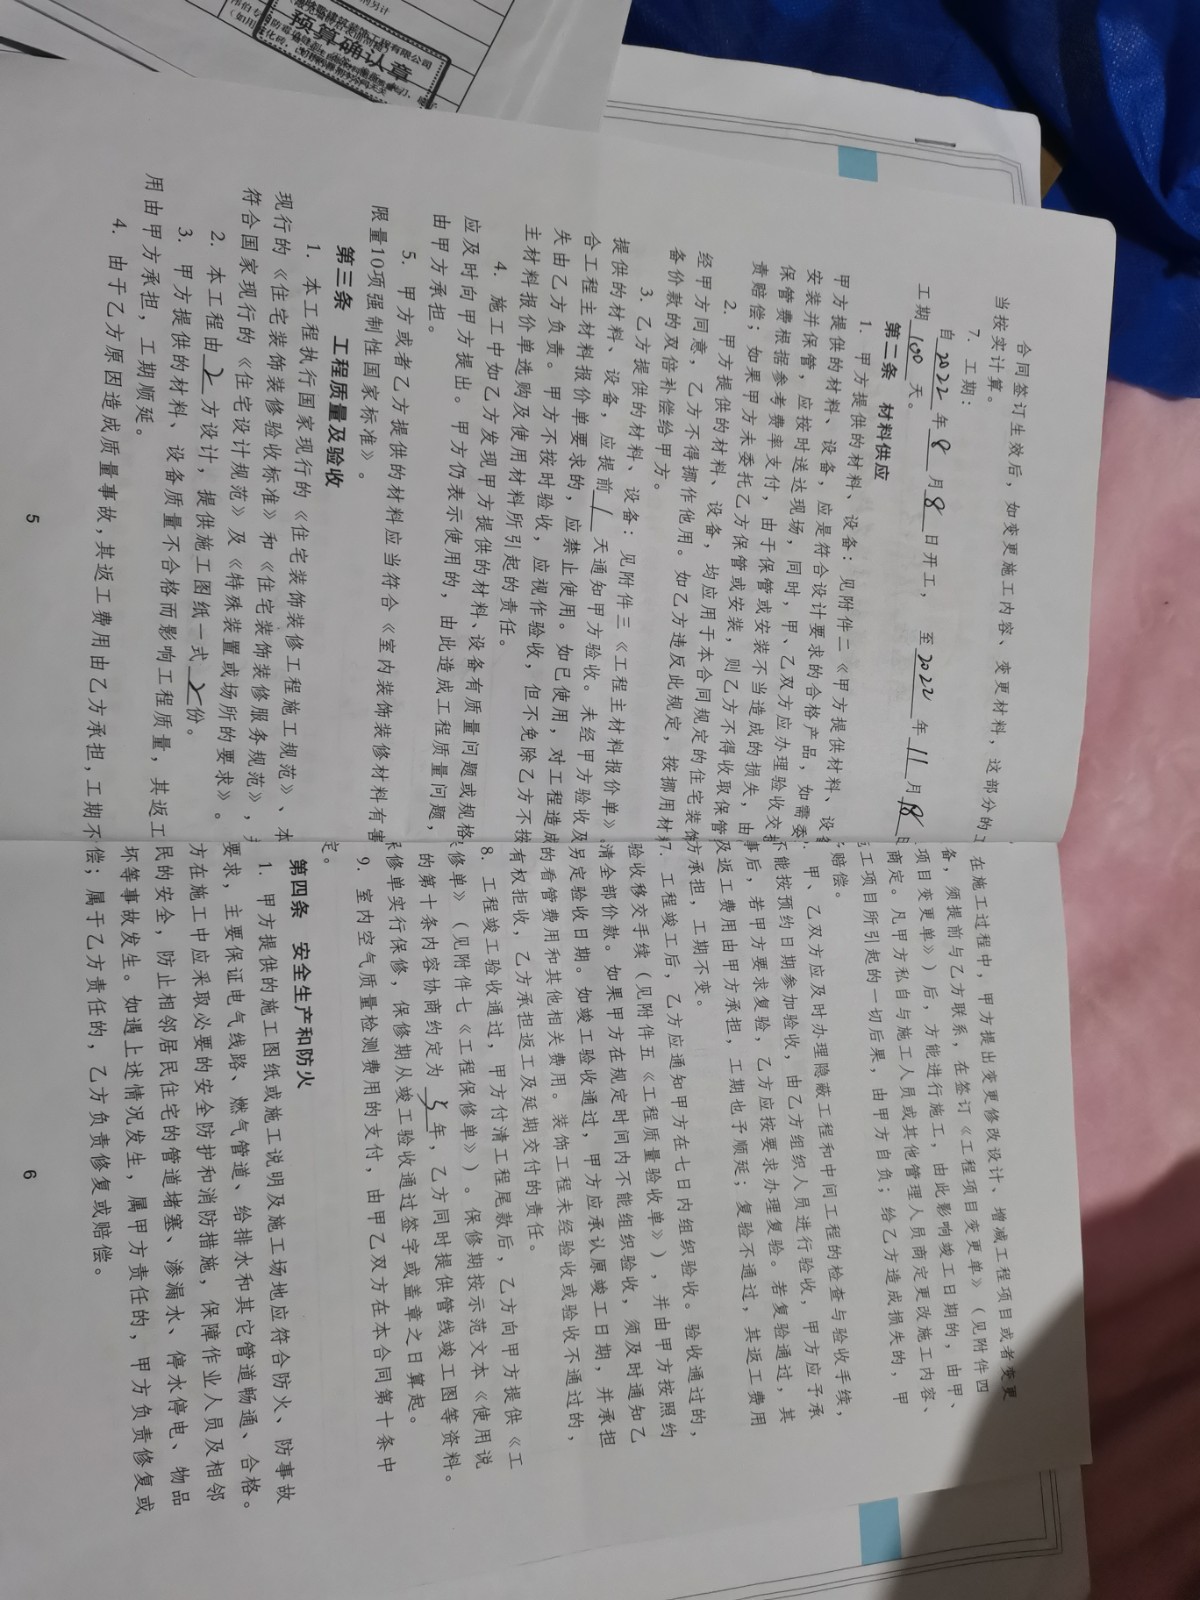 预算确认章
合同签订生效后，如变更施工内容、变更材料，这部分的
当按实计算。
7．工期：
自2022年8月8日开工，至2022年11月18日
工期100天。
第二条 材料供应
1．甲方提供的材料、设备：见附件二《甲方提供材料、设
甲方提供的材料、设备，应是符合设计要求的合格产品，如需委
安装并保管，应按时送达现场，同时，甲、乙双方应办理验收交
保管费根据参考费率支付，由于保管或安装不当造成的损失，由
责赔偿；如果甲方未委托乙方保管或安装，则乙方不得收取保管
2．甲方提供的材料、设备，均应用于本合同规定的住宅装饰
经甲方同意，乙方不得挪作他用。如乙方违反此规定，按挪用材
备价款的双倍补偿给甲方。
3．乙方提供的材料、设备：见附件三《工程主材料报价单》
提供的材料、设备，应提前1天通知甲方验收。未经甲方验收及
合工程主材料报价单要求的，应禁止使用。如已使用，对工程造成
失由乙方负责。甲方不按时验收，应视作验收，但不免除乙方不按
主材料报价单选购及使用材料所引起的责任。
4．施工中如乙方发现甲方提供的材料、设备有质量问题或规格
应及时向甲方提出。甲方仍表示使用的，由此造成工程质量问题，
由甲方承担。
5．甲方或者乙方提供的材料应当符合《室内装饰装修材料有害
限量10项强制性国家标准》。
第三条 工程质量及验收
1．本工程执行国家现行的《住宅装饰装修工程施工规范》、本
现行的《住宅装饰装修验收标准》和《住宅装饰装修服务规范》，
符合国家现行的《住宅设计规范》及《特殊装置或场所的要求》。
2．本工程由乙方设计，提供施工图纸一式2份。
3．甲方提供的材料、设备质量不合格而影响工程质量，其返工
用由甲方承担，工期顺延。
4．由于乙方原因造成质量事故，其返工费用由乙方承担，工期不
5
在施工过程中，甲方提出变更修改设计、增减工程项目或者变更
备，须提前与乙方联系，在签订《工程项目变更单》（见附件四
项目变更单》）后，方能进行施工，由此影响竣工日期的，由甲、
商定。凡甲方私自与施工人员或其他管理人员商定更改施工内容、
工项目所引起的一切后果，由甲方自负；给乙方造成损失的，甲
赔偿。
甲、乙双方应及时办理隐蔽工程和中间工程的检查与验收手续，
不能按预约日期参加验收，由乙方组织人员进行验收，甲方应予承
事后，若甲方要求复验，乙方应按要求办理复验。若复验通过，其
及返工费用由甲方承担，工期也予顺延；复验不通过，其返工费用
方承担，工期不变。
7．工程竣工后，乙方应通知甲方在七日内组织验收。验收通过的，
验收移交手续（见附件五《工程质量验收单》），并由甲方按照约
清全部价款。如果甲方在规定时间内不能组织验收，须及时通知乙
另定验收日期。如竣工验收通过，甲方应承认原竣工日期，并承担
的看管费用和其他相关费用。装饰工程未经验收或验收不通过的，
有权拒收，乙方承担返工及延期交付的责任。
8．工程竣工验收通过，甲方付清工程尾款后，乙方向甲方提供《工
修单》（见附件七《工程保修单》）。保修期按示范文本《使用说
的第十条内容协商约定为5年，乙方同时提供管线竣工图等资料。
修单实行保修，保修期从竣工验收通过签字或盖章之日算起。
9．室内空气质量检测费用的支付，由甲乙双方在本合同第十条中
定。
第四条 安全生产和防火
1．甲方提供的施工图纸或施工说明及施工场地应符合防火、防事故
要求，主要保证电气线路、燃气管道、给排水和其它管道畅通、合格。
方在施工中应采取必要的安全防护和消防措施，保障作业人员及相邻
民的安全，防止相邻居民住宅的管道堵塞、渗漏水、停水停电、物品
坏等事故发生。如遇上述情况发生，属甲方责任的，甲方负责修复或
偿；属于乙方责任的，乙方负责修复或赔偿。
6